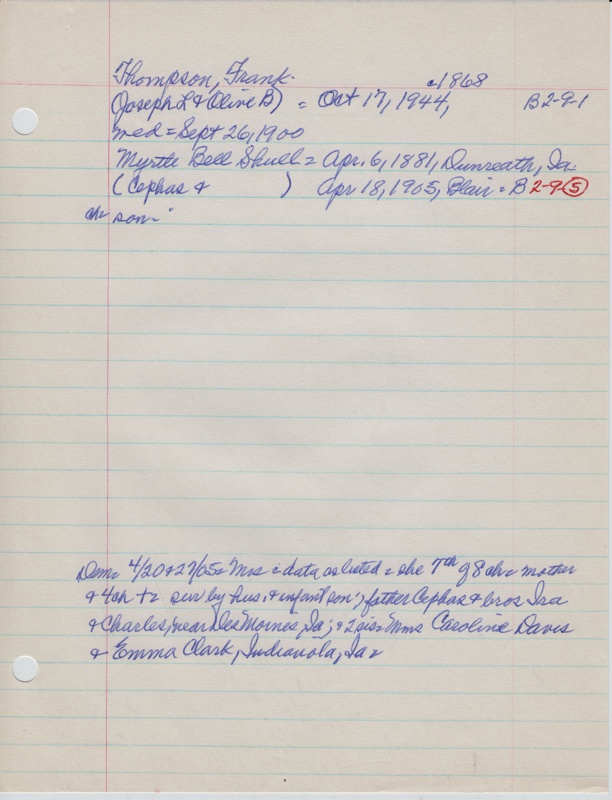 Thompson, Frank- c1868
(Joseph L & Olive B) = Oct 17, 1944, B2-9-1
med = Sept 26, 1900
Myrtle Bell Shull = Apr. 6, 1881, Dunreath, Ia.
(Cephas & ) Apr 18, 1905, Blair = B 2-9-5
ch= son-
Dem= 4/20 & 27/05= Mrs = data as listed = she 7th of 8 ch= mother
& 4 ch += sur by hus. & infant son; father Cephas & bros Ira
& Charles, near Des Moines, Ia; & 2 sis= Mmes Caroline Davis
& Emma Clark, Indianola, Ia=